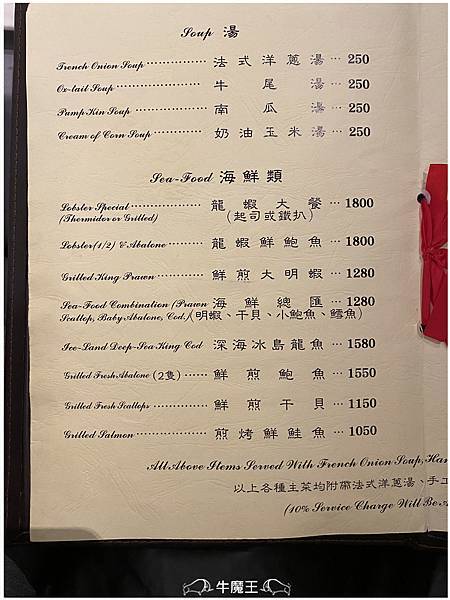 Soup 湯
French Onion Soup 法式洋蔥湯 250
Ox-tail Soup 牛尾湯 250
Pump Kin Soup 南瓜湯 250
Cream of Corn Soup 奶油玉米湯 250
Sea-Food 海鮮類
Lobster Special 龍蝦大餐 1800
(Thermidor or Grilled) (起司或鐵扒)
Lobster(1/2) & Abalone 龍蝦鮮鮑魚 1800
Grilled King Prawn 鮮煎大明蝦 1280
Sea-Food Combination (Prawn 海鮮總匯 1280
Scallop, Baby Abalone, Cod,) (明蝦、干貝、小鮑魚、鱈魚)
Ice-Land Deep-Sea King Cod 深海冰島龍魚 1580
Grilled Fresh Abalone (2隻) 鮮煎鮑魚 1550
Grilled Fresh Scallops 鮮煎干貝 1150
Grilled Salmon 煎烤鮮鮭魚 1050
All Above Items Served With French Onion Soup, Han
以上各種主菜均附帶法式洋蔥湯、手工
(10% Service Charge Will Be A
牛魔王